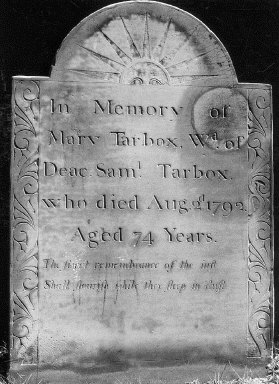 In Memory of
Mary Tarbox, Wd. of
Deac. Saml. Tarbox,
who died Augt. 9d. 1792,
Aged 74 Years.
The sweet remembrance of the just
Shall flourish while they sleep in dust